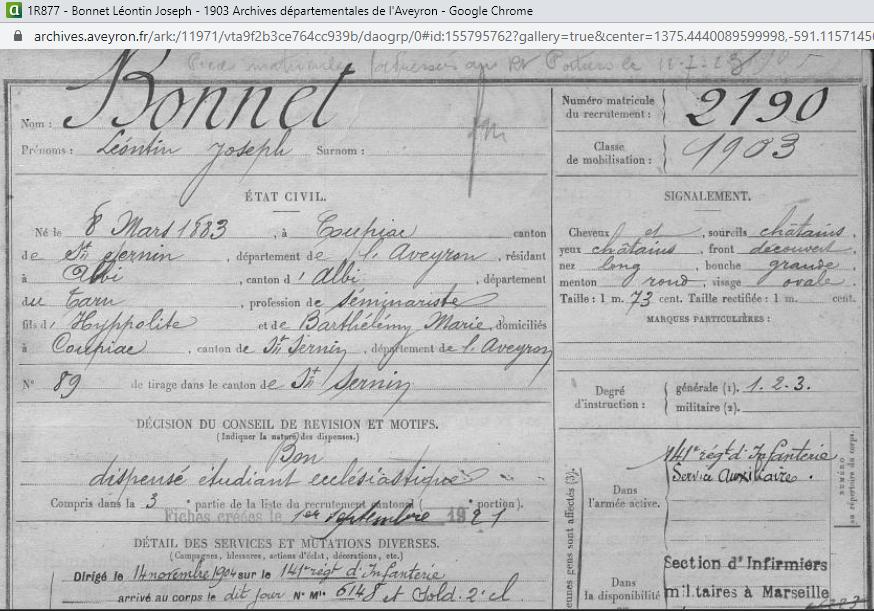 1R877 - Bonnet Léontin Joseph - 1903 Archives départementales de l'Aveyron - Google Chrome
archives.aveyron.fr/ark:/11971/vta9f2b3ce764cc939b/daogrp/0#id:155795762?gallery=true&center=1375.4440089599998,-591.11571450
Nom : Bonnet
Prénoms : Léontin Joseph Surnom :
Numéro matricule du recrutement : 2190
Classe de mobilisation : 1903
ÉTAT CIVIL.
Né le 8 Mars 1883, à Coupiac canton
de St Sernin, département de l'Aveyron, résidant
à Albi, canton d'Albi, département
du Tarn, profession de séminariste
fils d'Hyppolite et de Barthélémy Marie, domiciliés
à Coupiac, canton de St Sernin, département de l'Aveyron
N° 89 de tirage dans le canton de St Sernin
SIGNALEMENT.
Cheveux et, sourcils châtains,
yeux châtains, front découvert
nez long, bouche grande,
menton rond, visage ovale.
Taille : 1 m. 73 cent. Taille rectifiée : 1 m. cent.
MARQUES PARTICULIÈRES :
Degré d'instruction : générale (1). 1.2.3.
militaire (2).
DÉCISION DU CONSEIL DE REVISION ET MOTIFS.
(Indiquer la nature des dispenses.)
Bon
dispensé étudiant ecclésiastique
Compris dans la 3e partie de la liste du recrutement cantonal ( portion).
Fiches creées le 1er septembre 1921
DÉTAIL DES SERVICES ET MUTATIONS DIVERSES.
(Campagnes, blessures, actions d'éclat, décorations, etc.)
Dirigé le 14 novembre 1904 sur le 141e régt d'Infanterie
arrivé au corps le dit jour N° Mle 6148 et Sold. 2e cl
Dans l'armée active.
141e régt d'Infanterie
Service Auxiliaire.
Dans la disponibilité
Section d'Infirmiers
militaires à Marseille
eunes gens sont affectés (3).
NUMÉRO
au répertoire du corps.